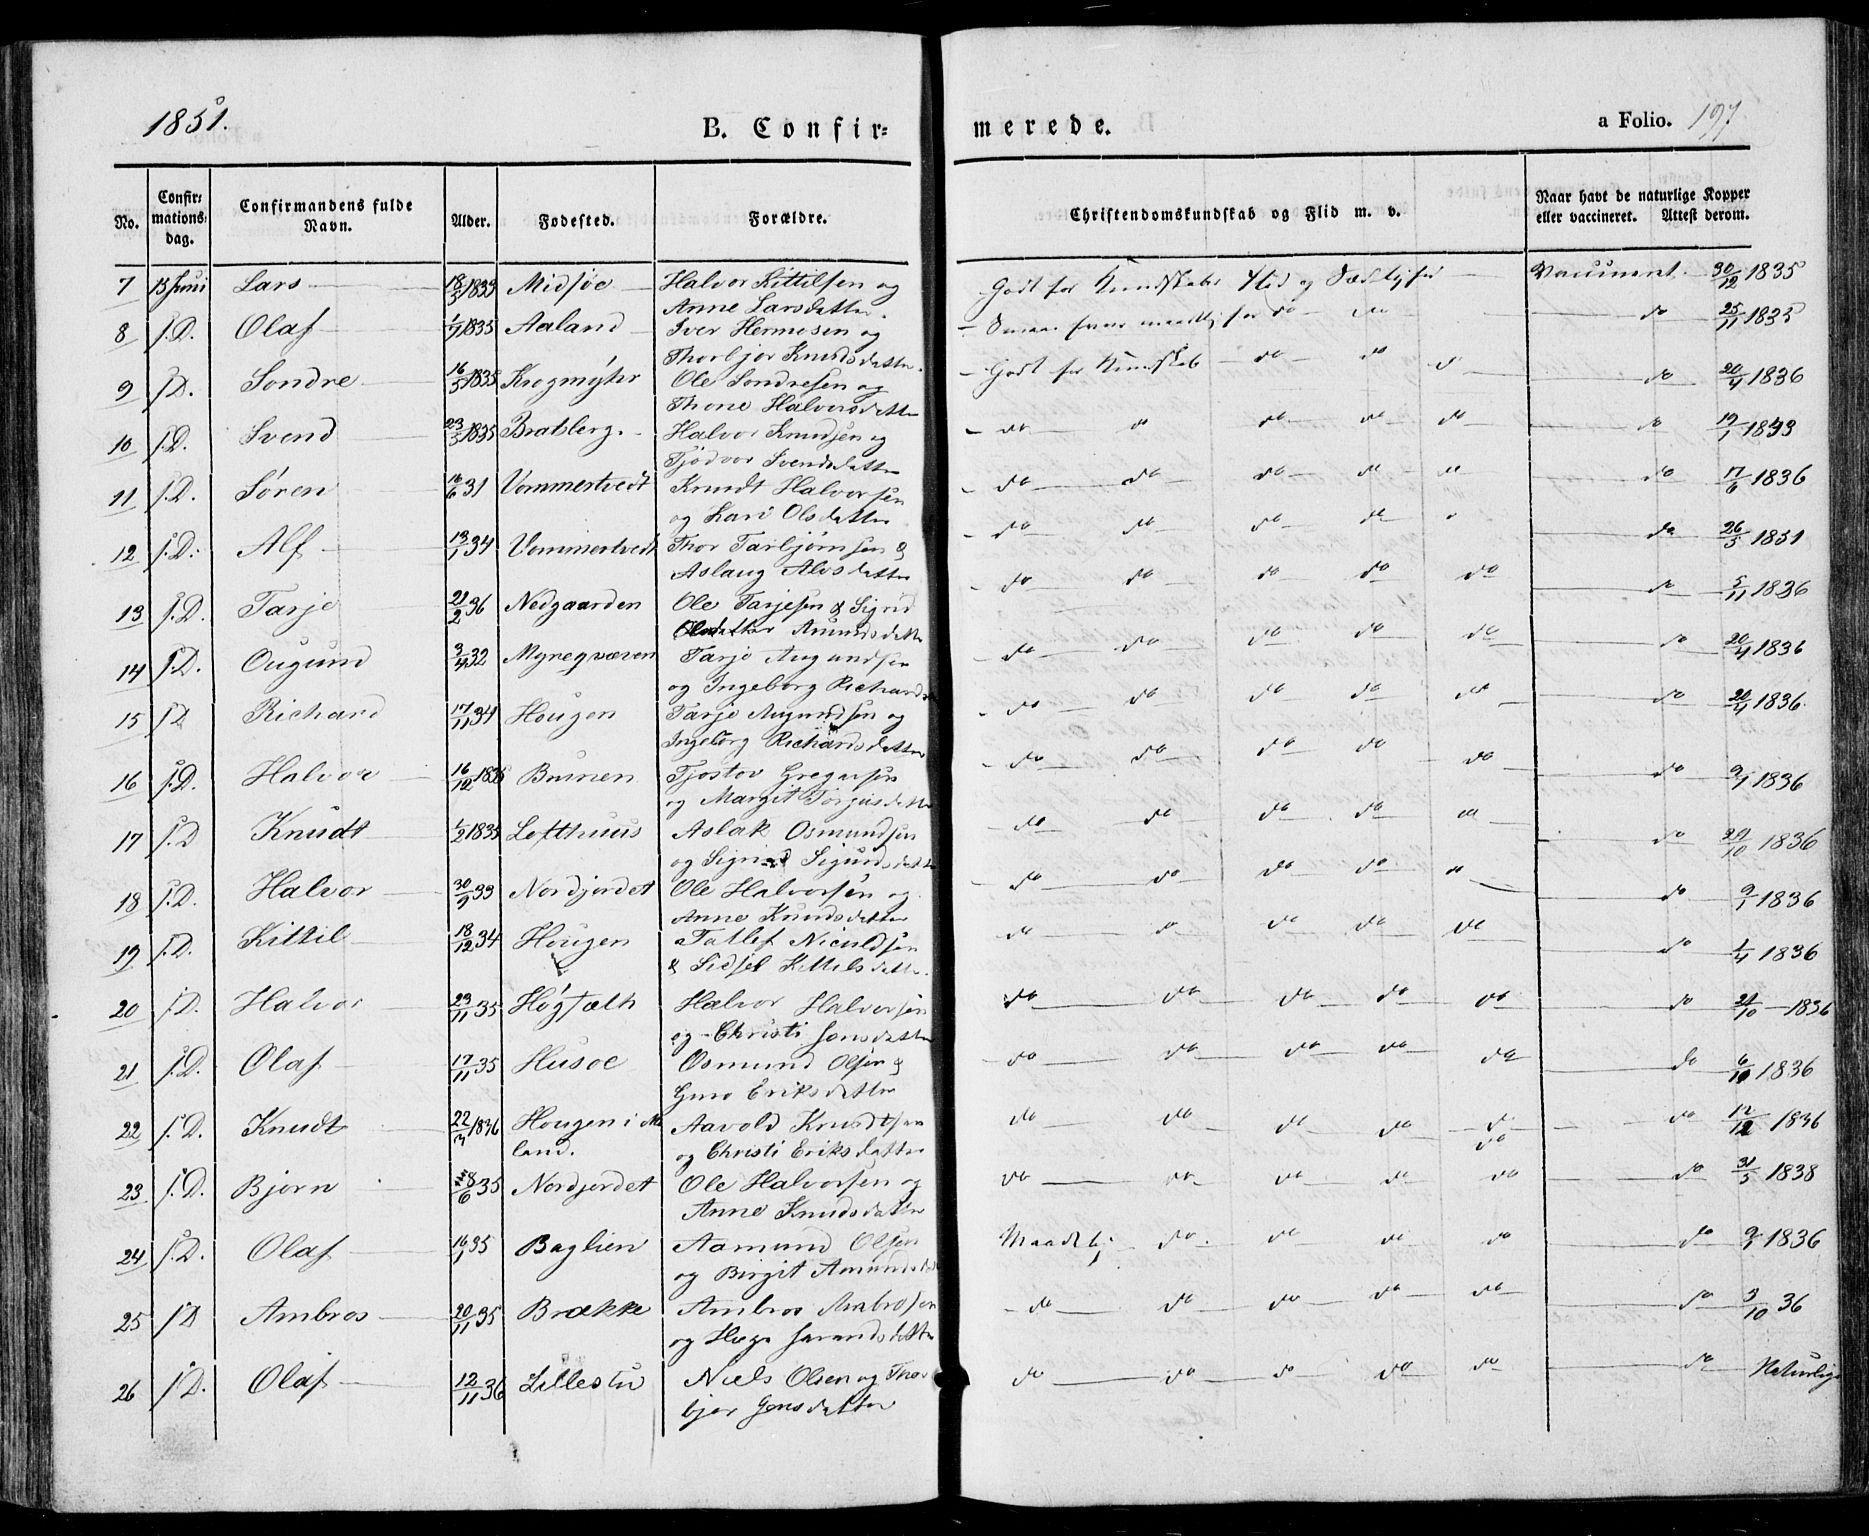 1851.
B. Confirmerede.
a Folio. 197
No. Confirmationsdag. Confirmandens fulde Navn. Alder. Fødested. Forældre. Christendomskundskab og Flid m. v. Naar havt de naturlige Kopper eller vaccineret. Attest derom.
7 15 Juni Lars 18/3 1833 Midsøe Halvor Kittilsen og Godt for Kundskab Flid og Sædelighed Vaccineret 30/12 1835
Anne Larsdatter
8 S.D. Olaf 1/7 1835 Aaland Iver Hermosen og do do 25/11 1835
Thorbjør Knudsdatter
9 S.D. Sondre 16/3 1835 Krogmyhr Ole Sondresen og Godt for Kundskab do do do 20/4 1836
Thone Halvorsdatter
10 S.D. Svend 23/3 1835 Bratsberg Halvor Knudsen og do do do do do do 19/1 1843
Tjødvor Svendsdatter
11 S.D. Søren 16/6 31 Vommertvedt Knudt Halvorsen do do do do do do 17/6 1836
og Kari Olsdatter
12 S.D. Alf 13/1 34 Vommertvedt Thor Tarbjørnsen & do do do do do 26/5 1851
Aslaug Alvsdatter
13 S.D. Tarje 21/2 36 Nedgaarden Ole Tarjesen & Sigrid do do do do do do 5/11 1836
Olsdatter Amundsdatter
14 S.D. Ougund 3/4 32 Myregvæven Tarje Augundsen do do do do do do 20/4 1836
og Ingeborg Richards
15 S.D. Richard 17/11 34 Hougen Tarje Augundsen og do do do do do do 20/4 1836
Ingeborg Richardsdatter
16 S.D. Halvor 16/12 1835 Brunen Tjostov Gregarsen do do do do do do 9/1 1836
og Margit Torjusdatter
17 S.D. Knudt 1/2 1835 Lofthuus Aslak Osmundsen do do do do do do 30/10 1836
og Signe Sigurdsdatter
18 S.D. Halvor 30/9 33 Nordjordet Ole Halvorsen og do do do do do do 9/1 1836
Anne Knudsdatter
19 S.D. Kittil 18/12 34 Hougen Tallef Niculdsen do do do do do do 1/4 1836
& Sidsel Kittilsdatter
20 S.D. Halvor 23/11 35 Høgfæth Halvor Halvorsen do do do do do do 21/10 1836
og Christi Jonsdatter
21 S.D. Olaf 17/11 35 Husoe Osmund Olsen & do do do do do do 6/10 1836
Guro Eriksdatter
22 S.D. Knudt 22/3 1836 Hougen i Me Aavold Knudtsen do do do do do do 12/12 1836
land. og Christi Eriksdatter do
23 S.D. Bjørn 8/6 35 Nordjordet Ole Halvorsen og do do do do do do 31/5 1838
Anne Knudsdatter
24 S.D. Olaf 16/1 35 Baglien Aamund Olsen Maadelig do do do do do 9/1 1836
og Birgit Amunds
25 S.D. Ambros 20/11 35 Brække Ambros Ambrosen do do do do do do 3/10 36
og Hæge Javandsdatter
26 S.D. Olaf 12/11 36 Lillestu Niels Olsen og Thor do do do do do do Naturlige
bjør Jensdatter